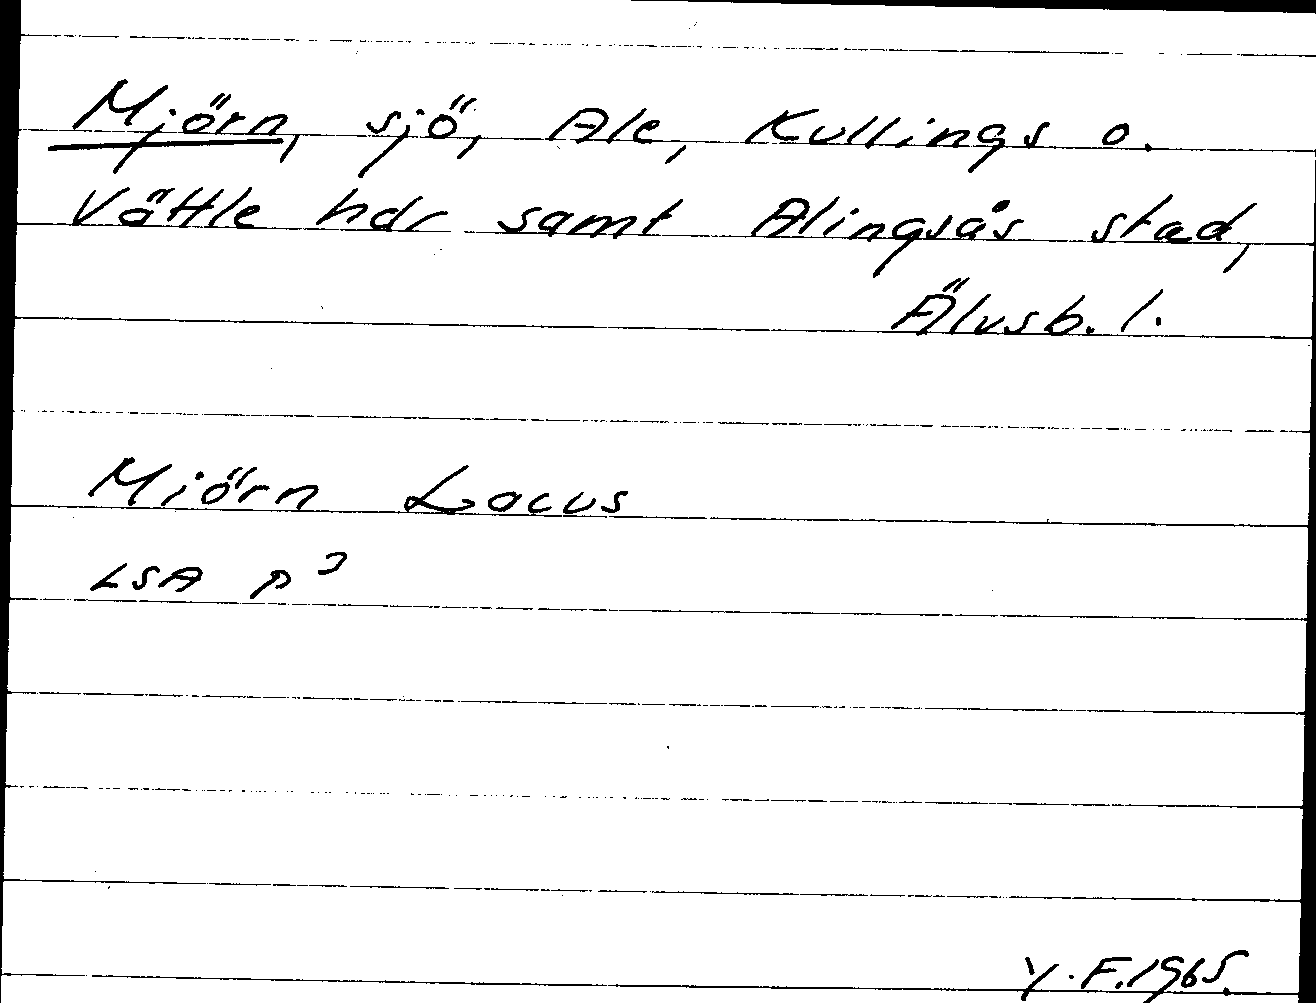 Mjörn, sjö, Ale, Kullings o.
Vättle hdr samt Alingsås stad,
Älvsb. l.
Miörn Lacus
LSA P³
Y.F. 1965.